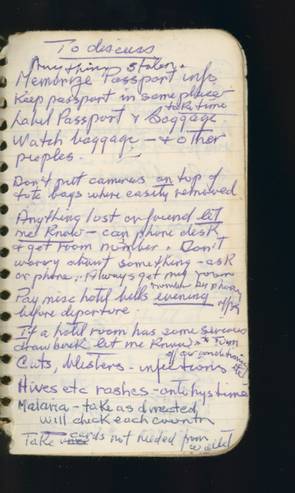 To discuss
Anything stolen.
Memorize Passport info
Keep passport in same place
take time
Label Passport & Baggage
Watch baggage - & other
peoples.
Don't put cameras on top of
tote bags where easily removed
Anything lost or found let
me know - can phone desk
& get room number. Don't
worry about something - ask
or phone. Always get my room
number by phoning
Pay misc hotel bills evening
before departure.
If a hotel room has some serious
drawback let me know
Cuts, blisters - infections
Hives etc rashes - antihystimine
Malaria - take as directed
will check each country
Take cards not needed from
wallet